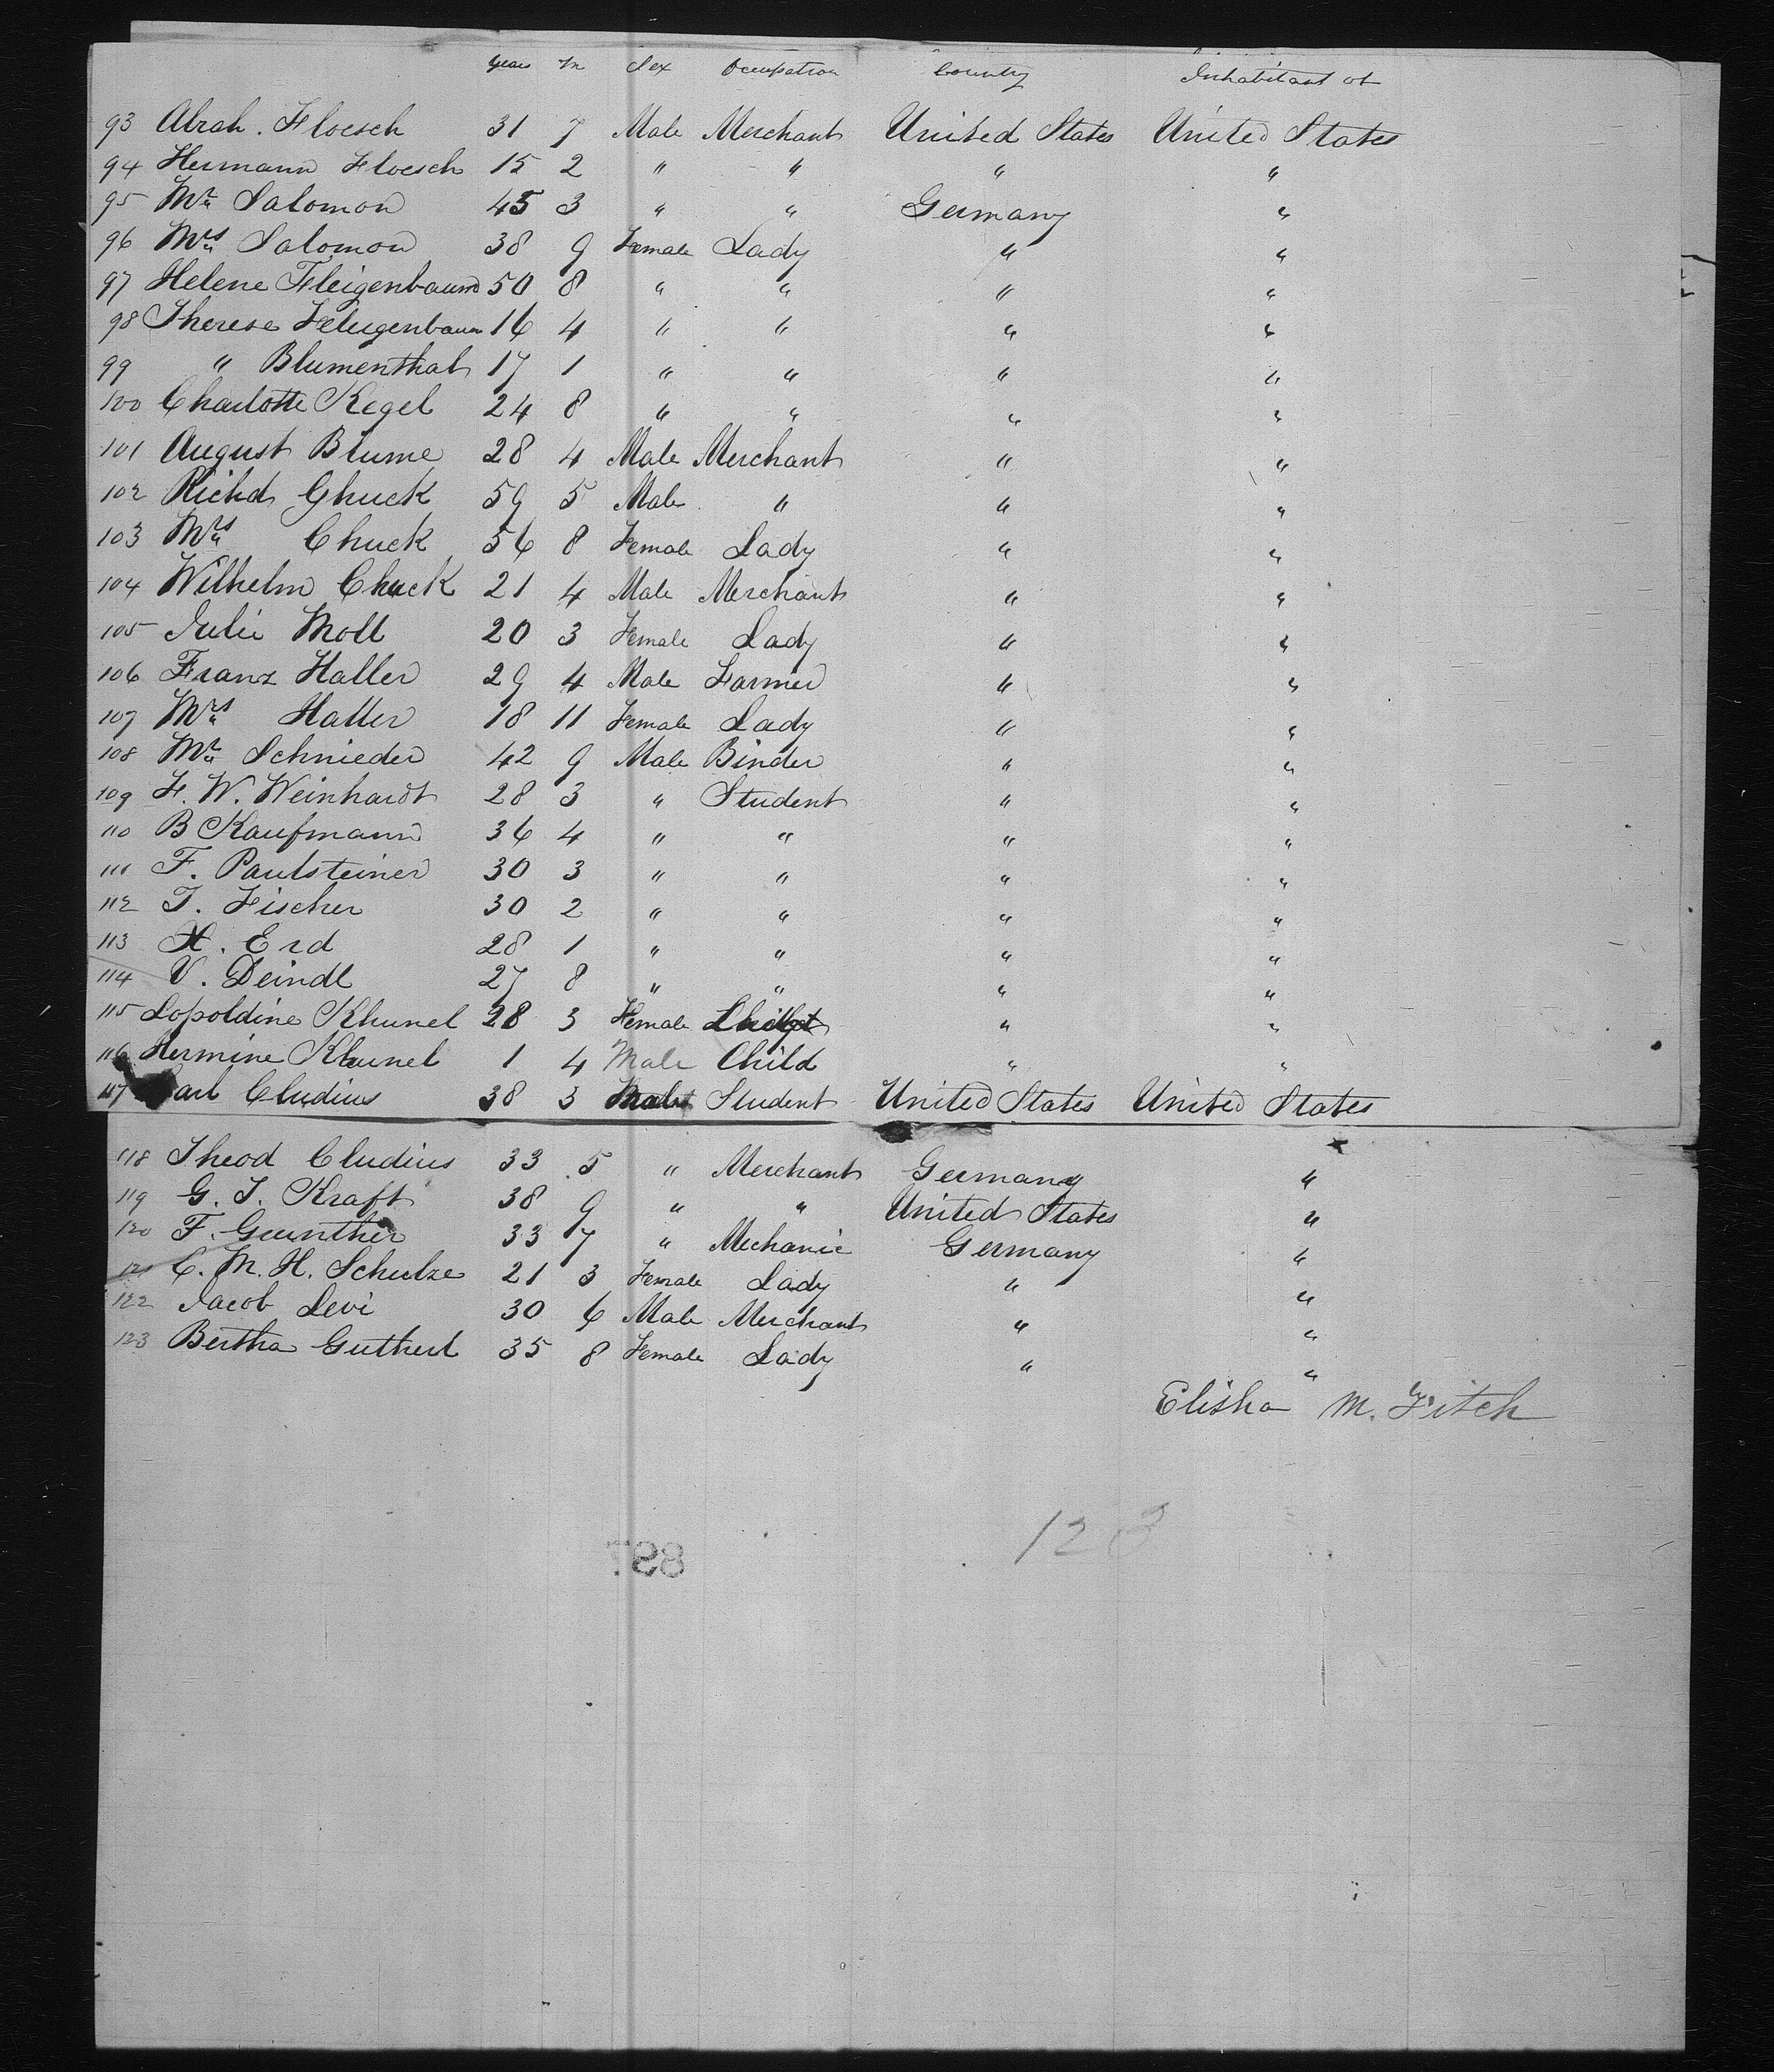 Years M Sex Occupation County Inhabitant of
93 Abrah. Floesch 31 7 Male Merchant United States United States
94 Hermann Floesch 15 2 " " " "
95 Mr. Salomon 45 3 " " Germany "
96 Mrs. Salomon 38 9 Female Lady " "
97 Helene Fleigenbaum 50 8 " " " "
98 Therese Feleigenbaum 16 4 " " " "
99 " Blumenthal 17 1 " " " "
100 Charlotte Kegel 24 8 " " " "
101 August Blume 28 4 Male Merchant " "
102 Richd Ghuck 59 5 Male " " "
103 Mrs. Chuck 56 8 Female Lady " "
104 Wilhelm Chuck 21 4 Male Merchant " "
105 Julie Moll 20 3 Female Lady " "
106 Franz Haller 29 4 Male Farmer " "
107 Mrs. Haller 18 11 Female Lady " "
108 Mr. Schnieder 42 9 Male Binder " "
109 F. W. Weinhardt 28 3 " Student " "
110 B Kaufmann 36 4 " " " "
111 F. Paulsteiner 30 3 " " " "
112 T. Fischer 30 2 " " " "
113 H. Erd 28 1 " " " "
114 V. Deindl 27 8 " " " "
115 Lopoldine Khunel 28 3 Female " "
116 Hermine Khunel 1 4 Male Child " "
117 Carl Cludius 38 3 Male Student United States United States
118 Theod Cludius 33 5 " Merchant Germany "
119 G. T. Kraft 38 9 " " United States "
120 F. Guenther 33 7 " Mechanic Germany "
121 C. M. H. Schulze 21 3 Female Lady " "
122 Jacob Levi 30 6 Male Merchant " "
123 Bertha Guthert 35 8 Female Lady " "
Elisha M. Fitch
123